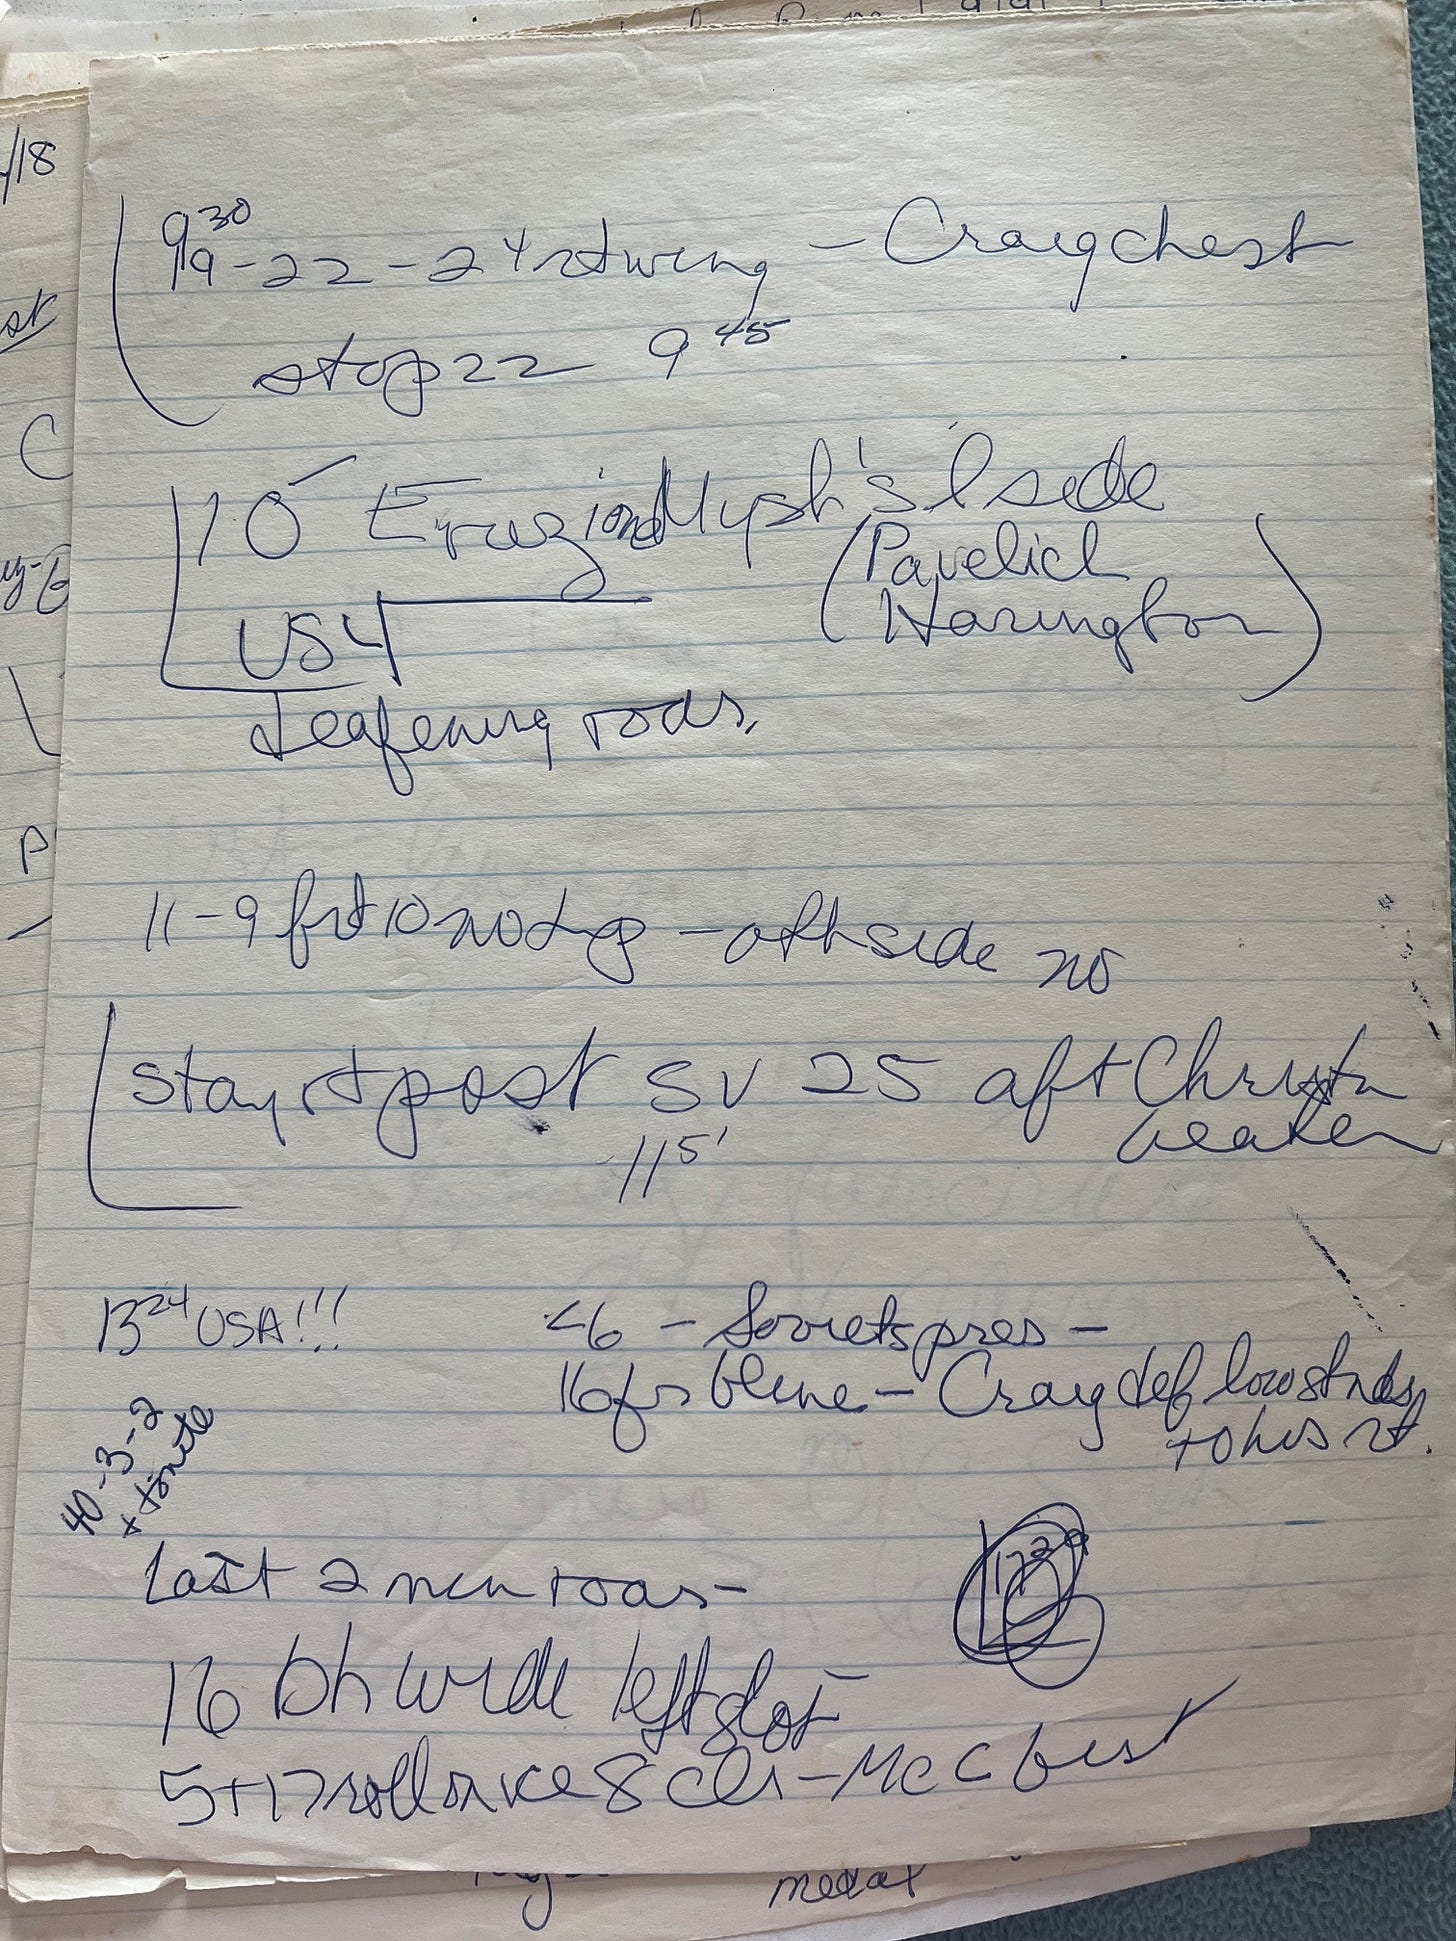 9 30
19-22-24 rt wing - Craig chest
stop 22 9 45
10 Eruzione Mysh's l side
(Pavelich
Harington)
US 4
deafening roar.
11-9 frt 10 no dg - oth side no
stay rt post SV 25 aft Christn
beaten
11 5'
13 24 USA!!!
<6 - Soviets pres -
16 fr bline - Craig def low stnds
to his rt.
40-3-2
+ tonite
Last 2 min roar -
17 29
16 bh wide left slot
5+17 roll on ice 8 clr - McC best
/18
st
C
P
medal